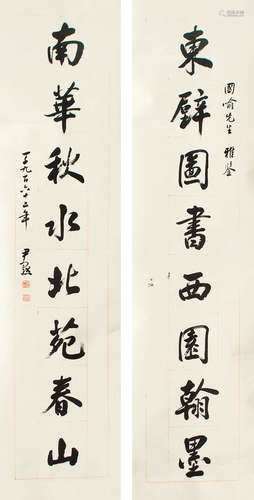 國喻先生 雅鑒
東壁圖書西園翰墨
南華秋水北苑春山
一九百六十二年
尹默